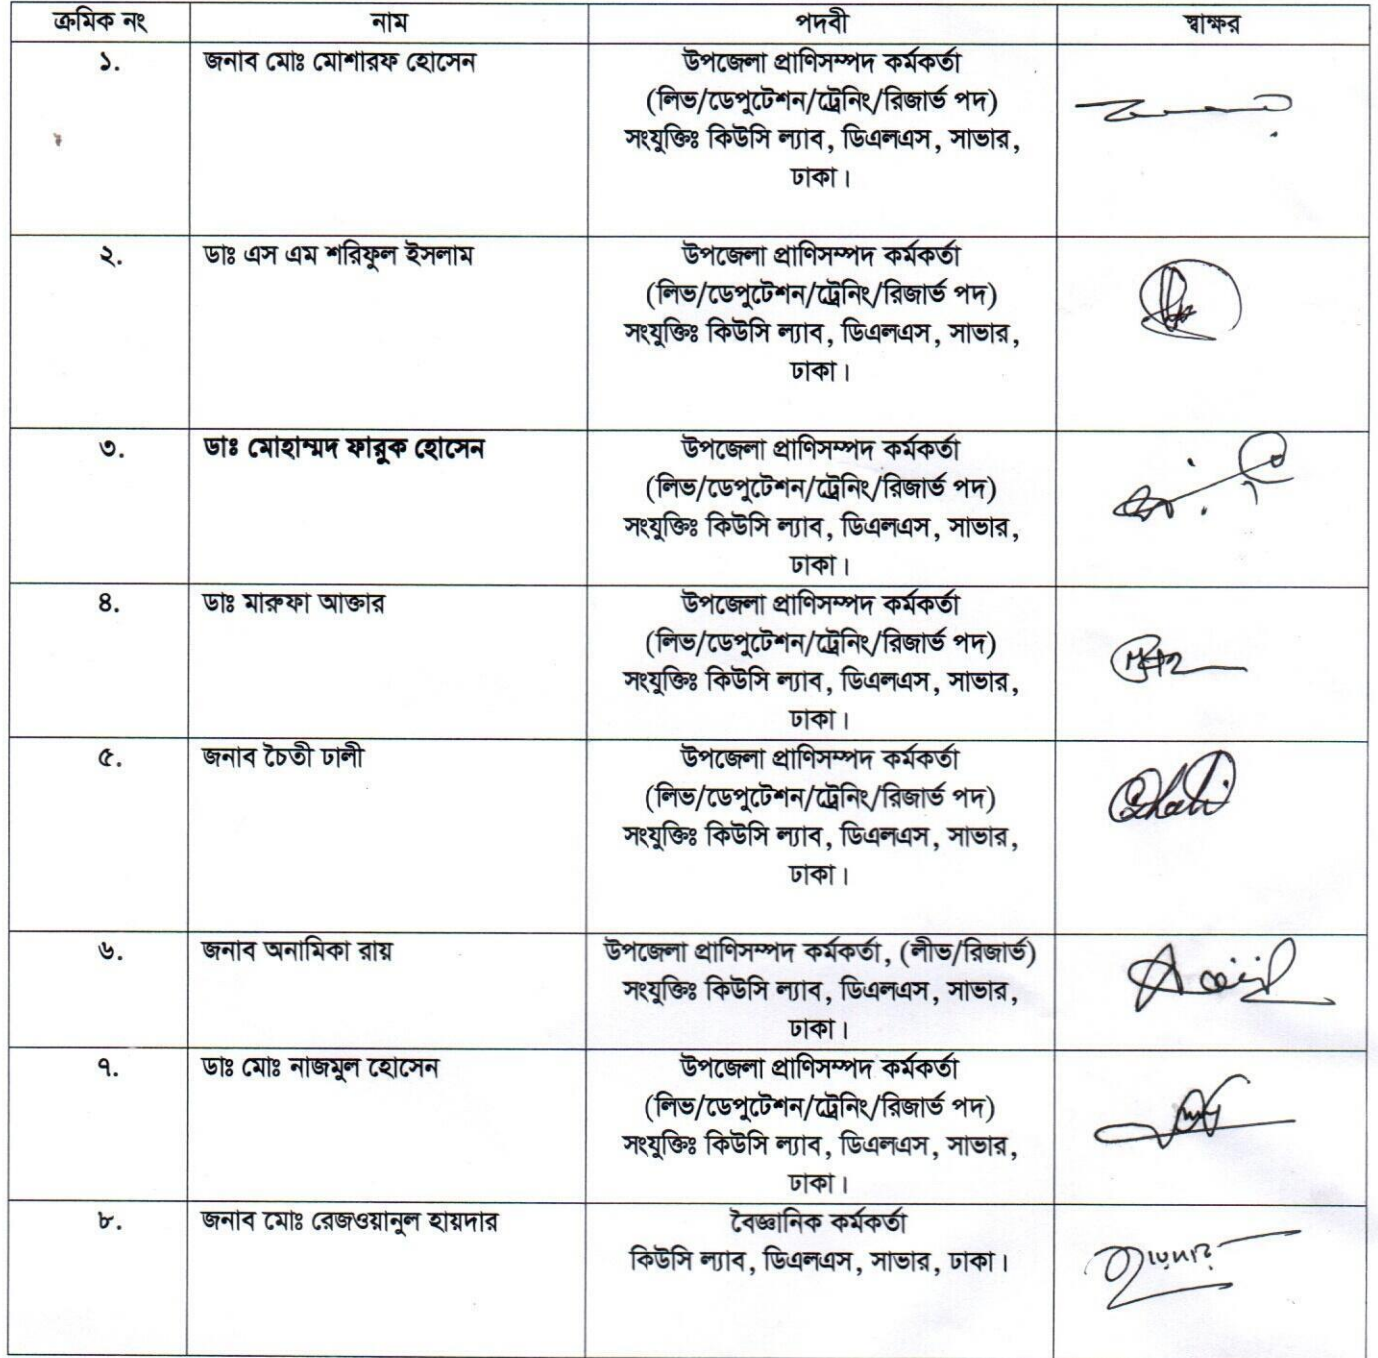 ক্রমিক নং নাম পদবী স্বাক্ষর
১. জনাব মোঃ মোশারফ হোসেন উপজেলা প্রাণিসম্পদ কর্মকর্তা
(লিভ/ডেপুটেশন/ট্রেনিং/রিজার্ভ পদ)
সংযুক্তিঃ কিউসি ল্যাব, ডিএলএস, সাভার,
ঢাকা।
২. ডাঃ এস এম শরিফুল ইসলাম উপজেলা প্রাণিসম্পদ কর্মকর্তা
(লিভ/ডেপুটেশন/ট্রেনিং/রিজার্ভ পদ)
সংযুক্তিঃ কিউসি ল্যাব, ডিএলএস, সাভার,
ঢাকা।
৩. ডাঃ মোহাম্মদ ফারুক হোসেন উপজেলা প্রাণিসম্পদ কর্মকর্তা
(লিভ/ডেপুটেশন/ট্রেনিং/রিজার্ভ পদ)
সংযুক্তিঃ কিউসি ল্যাব, ডিএলএস, সাভার,
ঢাকা।
৪. ডাঃ মারুফা আক্তার উপজেলা প্রাণিসম্পদ কর্মকর্তা
(লিভ/ডেপুটেশন/ট্রেনিং/রিজার্ভ পদ)
সংযুক্তিঃ কিউসি ল্যাব, ডিএলএস, সাভার,
ঢাকা।
৫. জনাব চৈতী ঢালী উপজেলা প্রাণিসম্পদ কর্মকর্তা
(লিভ/ডেপুটেশন/ট্রেনিং/রিজার্ভ পদ)
সংযুক্তিঃ কিউসি ল্যাব, ডিএলএস, সাভার,
ঢাকা।
৬. জনাব অনামিকা রায় উপজেলা প্রাণিসম্পদ কর্মকর্তা, (লীভ/রিজার্ভ)
সংযুক্তিঃ কিউসি ল্যাব, ডিএলএস, সাভার,
ঢাকা।
৭. ডাঃ মোঃ নাজমুল হোসেন উপজেলা প্রাণিসম্পদ কর্মকর্তা
(লিভ/ডেপুটেশন/ট্রেনিং/রিজার্ভ পদ)
সংযুক্তিঃ কিউসি ল্যাব, ডিএলএস, সাভার,
ঢাকা।
৮. জনাব মোঃ রেজওয়ানুল হায়দার বৈজ্ঞানিক কর্মকর্তা
কিউসি ল্যাব, ডিএলএস, সাভার, ঢাকা।